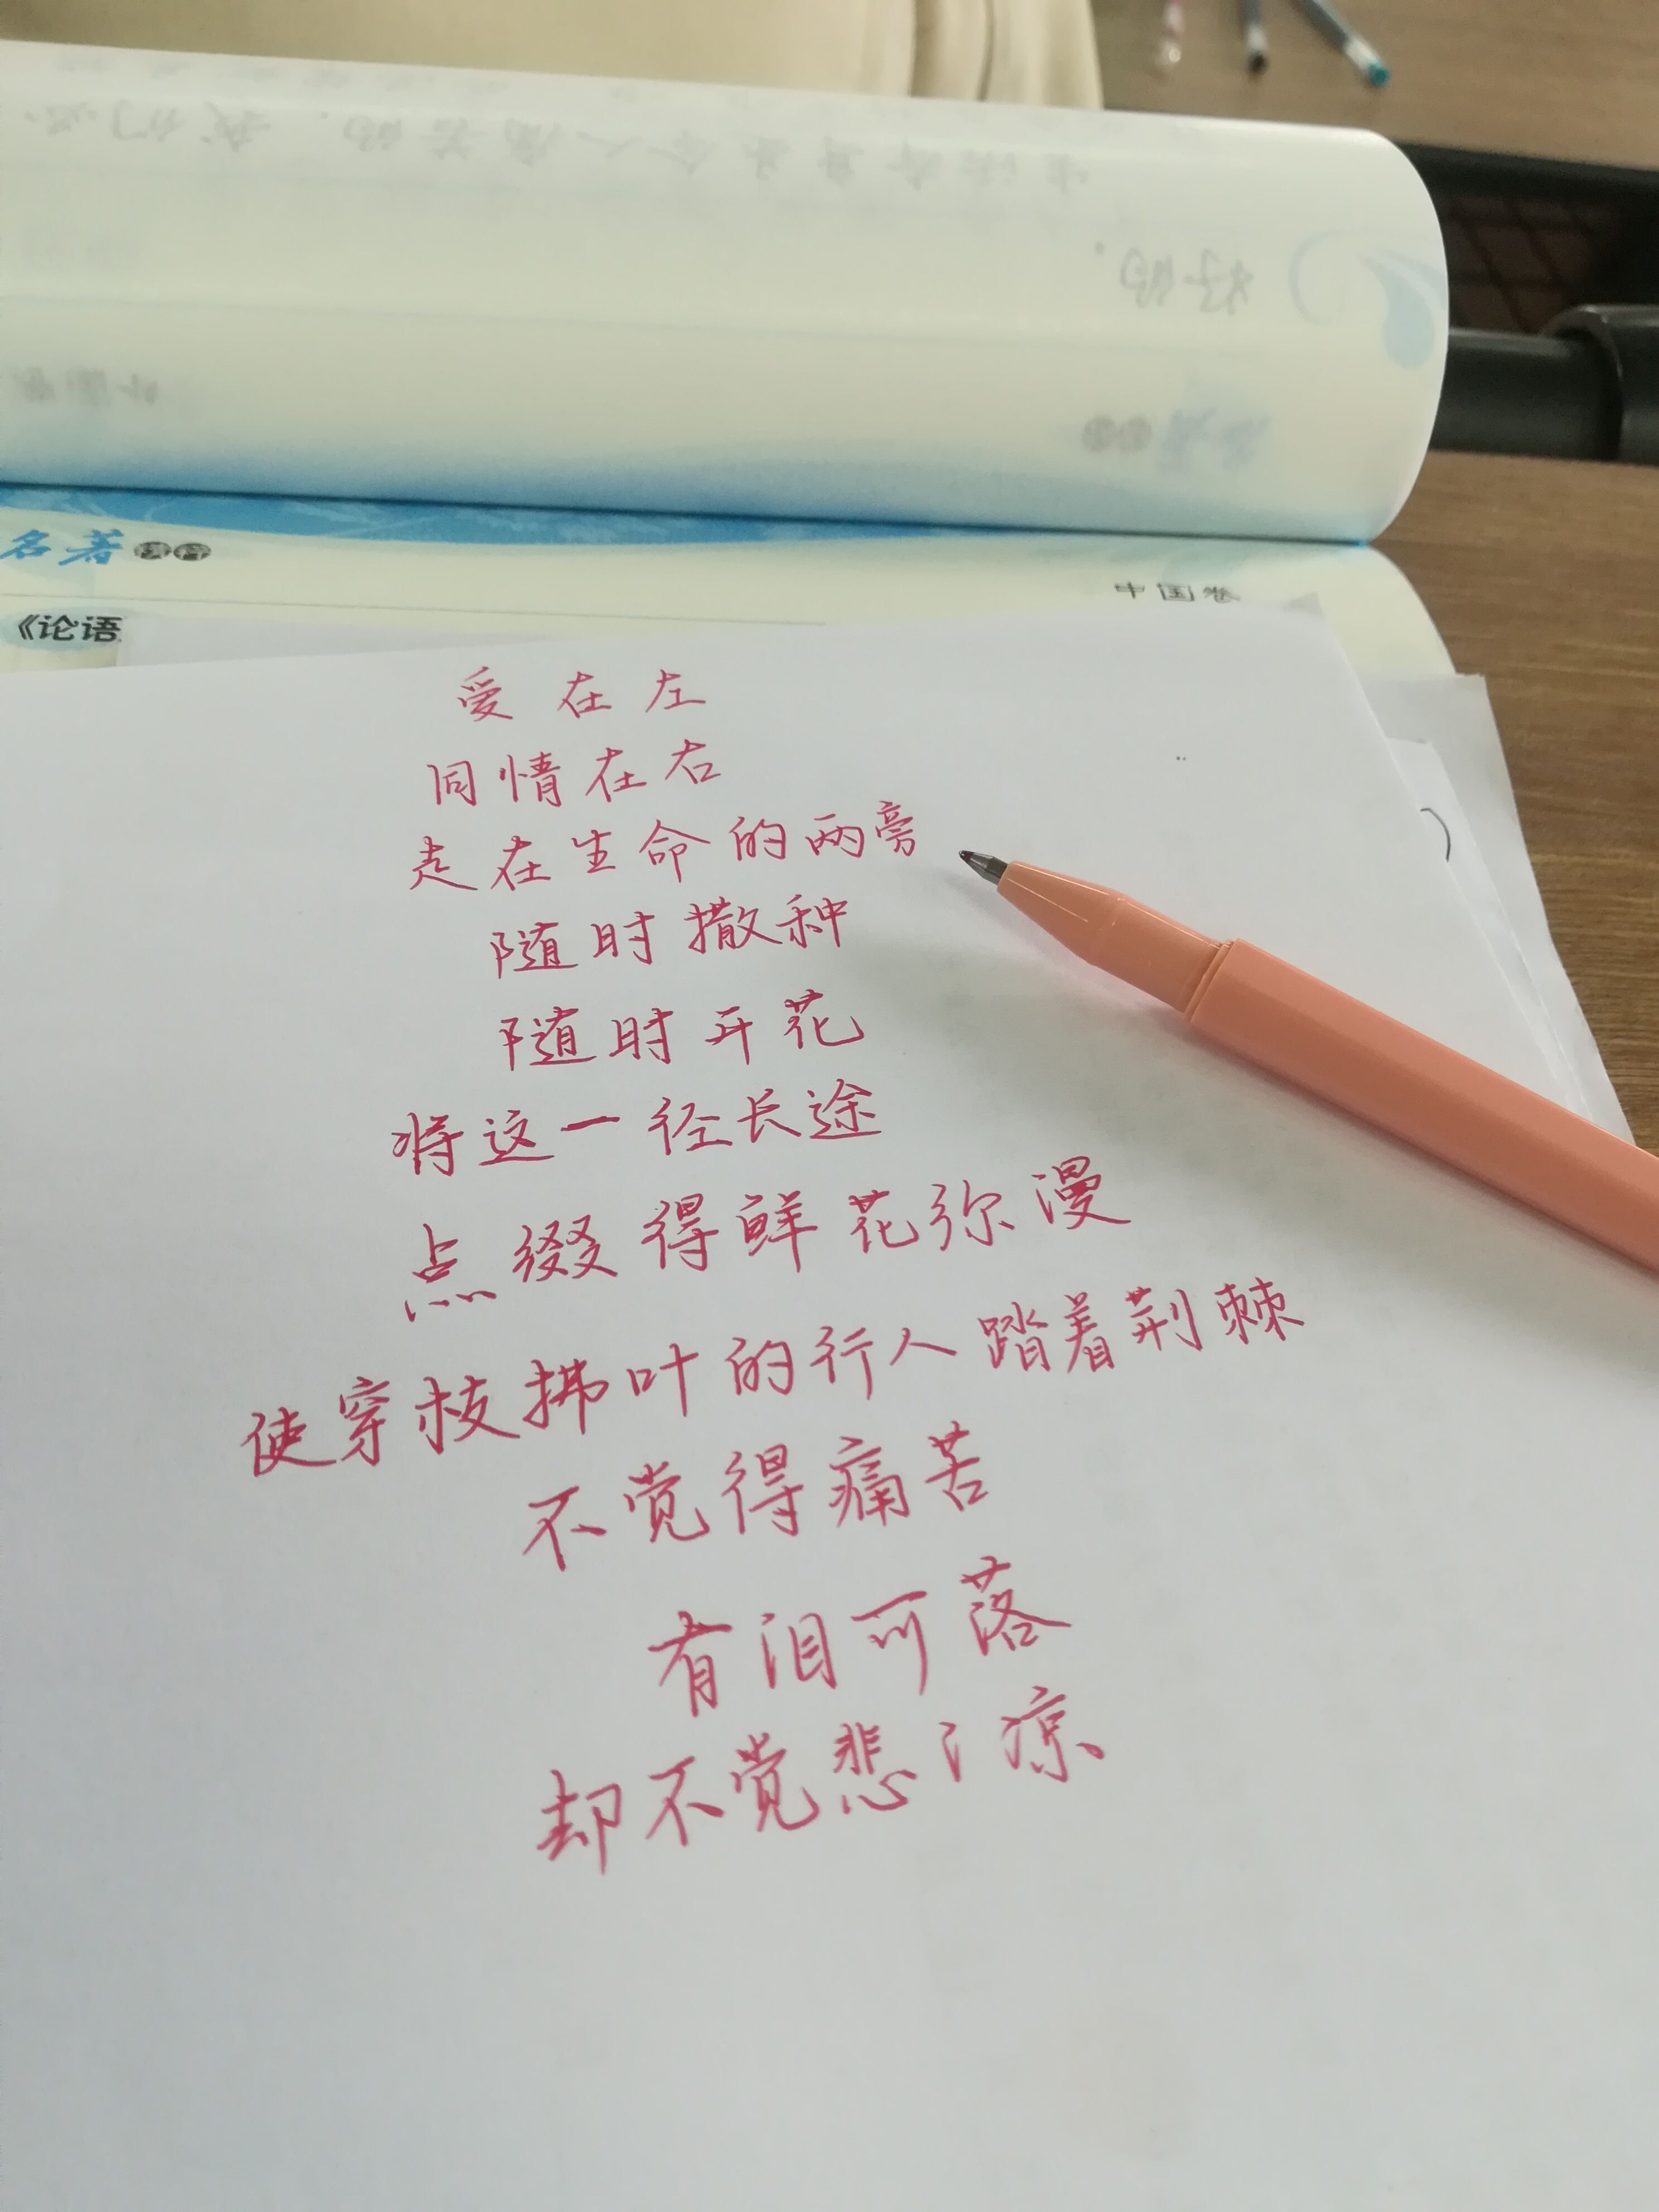 名著
《论语
中国卷
爱在左
同情在右
走在生命的两旁
随时撒种
随时开花
将这一径长途
点缀得鲜花弥漫
使穿枝拂叶的行人踏着荆棘
不觉得痛苦
有泪可落
却不觉悲凉